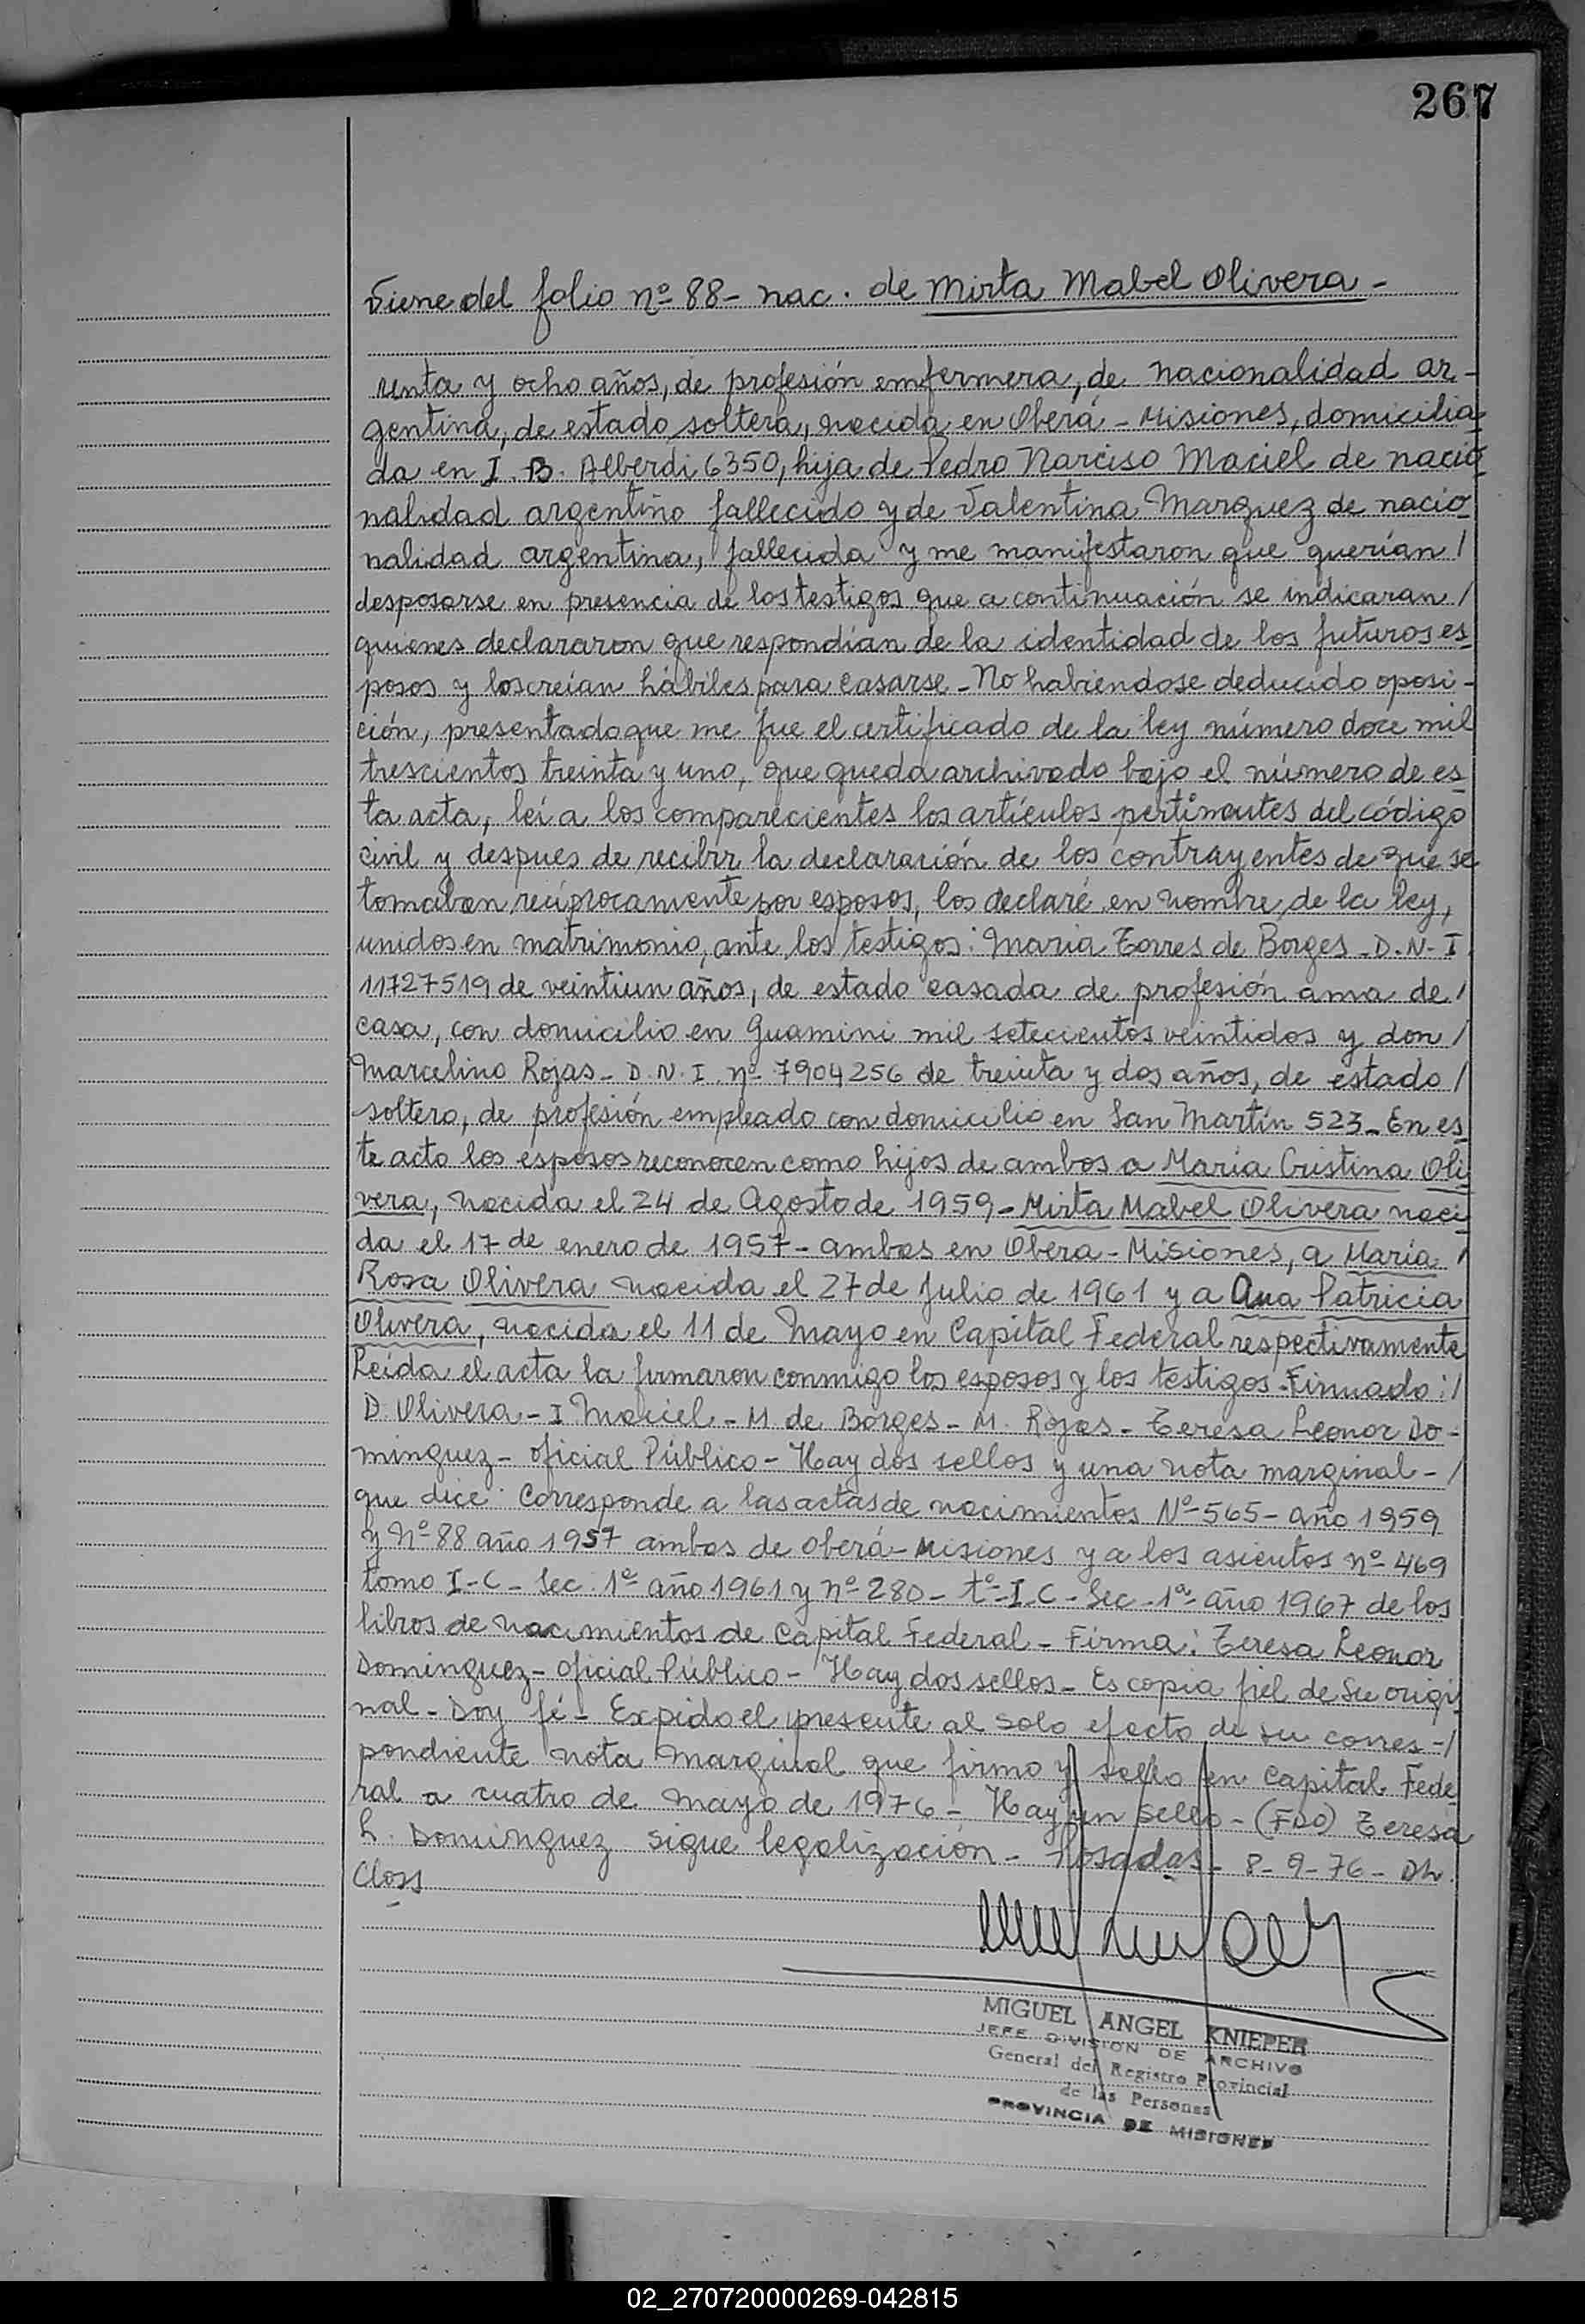 267
Viene del folio nº 88- nac. de Mirta Mabel Olivera -
renta y ocho años, de profesión emfermera, de nacionalidad ar-
gentina, de estado soltera, nacida en Oberá - Misiones, domicilia-
da en I. B. Alberdi 6350, hija de Pedro Narciso Maciel de nacio-
nalidad argentino fallecido y de Valentina Marquez de nacio-
nalidad argentina, fallecida y me manifestaron que querían /
desposarse en presencia de los testigos que a continuación se indicaran /
quienes declararon que respondían de la identidad de los futuros es-
posos y los creían hábiles para casarse - No habiendose deducido oposi-
ción, presentado que me fue el certificado de la ley número doce mil
trescientos treinta y uno, que queda archivado bajo el número de es-
ta acta, leí a los comparecientes los artículos pertinentes del código
civil y despues de recibir la declaración de los contrayentes de que se
tomaban recíprocamente por esposos, los declaré en nombre de la ley,
unidos en matrimonio, ante los testigos: Maria Torres de Borges - D.N.I
11727519 de veintiun años, de estado casada de profesión ama de /
casa, con domicilio en Guamini mil setecientos veintidos y don /
Marcelino Rojas - D.N.I. nº 7904256 de treinta y dos años, de estado /
soltero, de profesión empleado con domicilio en San Martín 523 - En es-
te acto los esposos reconocen como hijos de ambos a María Cristina Oli-
vera, nacida el 24 de Agosto de 1959 - Mirta Mabel Olivera naci-
da el 17 de enero de 1957 - ambas en Obera - Misiones, a María /
Rosa Olivera nacida el 27 de Julio de 1961 y a Ana Patricia
Olivera, nacida el 11 de Mayo en Capital Federal respectivamente
Leída el acta la firmaron conmigo los esposos y los testigos - Firmado: /
D. Olivera - I Maciel - M. de Borges - M. Rojas - Teresa Leonor Do-
minguez - Oficial Público - Hay dos sellos y una nota marginal - /
que dice: Corresponde a las actas de nacimientos Nº 565 - año 1959
y Nº 88 año 1957 ambas de Oberá - Misiones y a los asientos nº 469
tomo I-C - Sec. 1ª año 1961 y nº 280 - tº - I C - Sec - 1ª año 1967 de los
libros de nacimientos de Capital Federal - Firma: Teresa Leonor
Dominguez - Oficial Público - Hay dos sellos - Es copia fiel de su origi-
nal - Doy fé - Expido el presente al solo efecto de su corres- /
pondiente nota marginal que firmo y sello en Capital Fede-
ral a cuatro de Mayo de 1976 - Hay un sello - (FDO) Teresa
L. Dominguez sigue legalización - Posadas - 8-9-76 - Dh
Closs
MIGUEL ANGEL KNIEPER
JEFE DIVISION DE ARCHIVO
General del Registro Provincial
de las Personas
PROVINCIA DE MISIONES
02_270720000269-042815